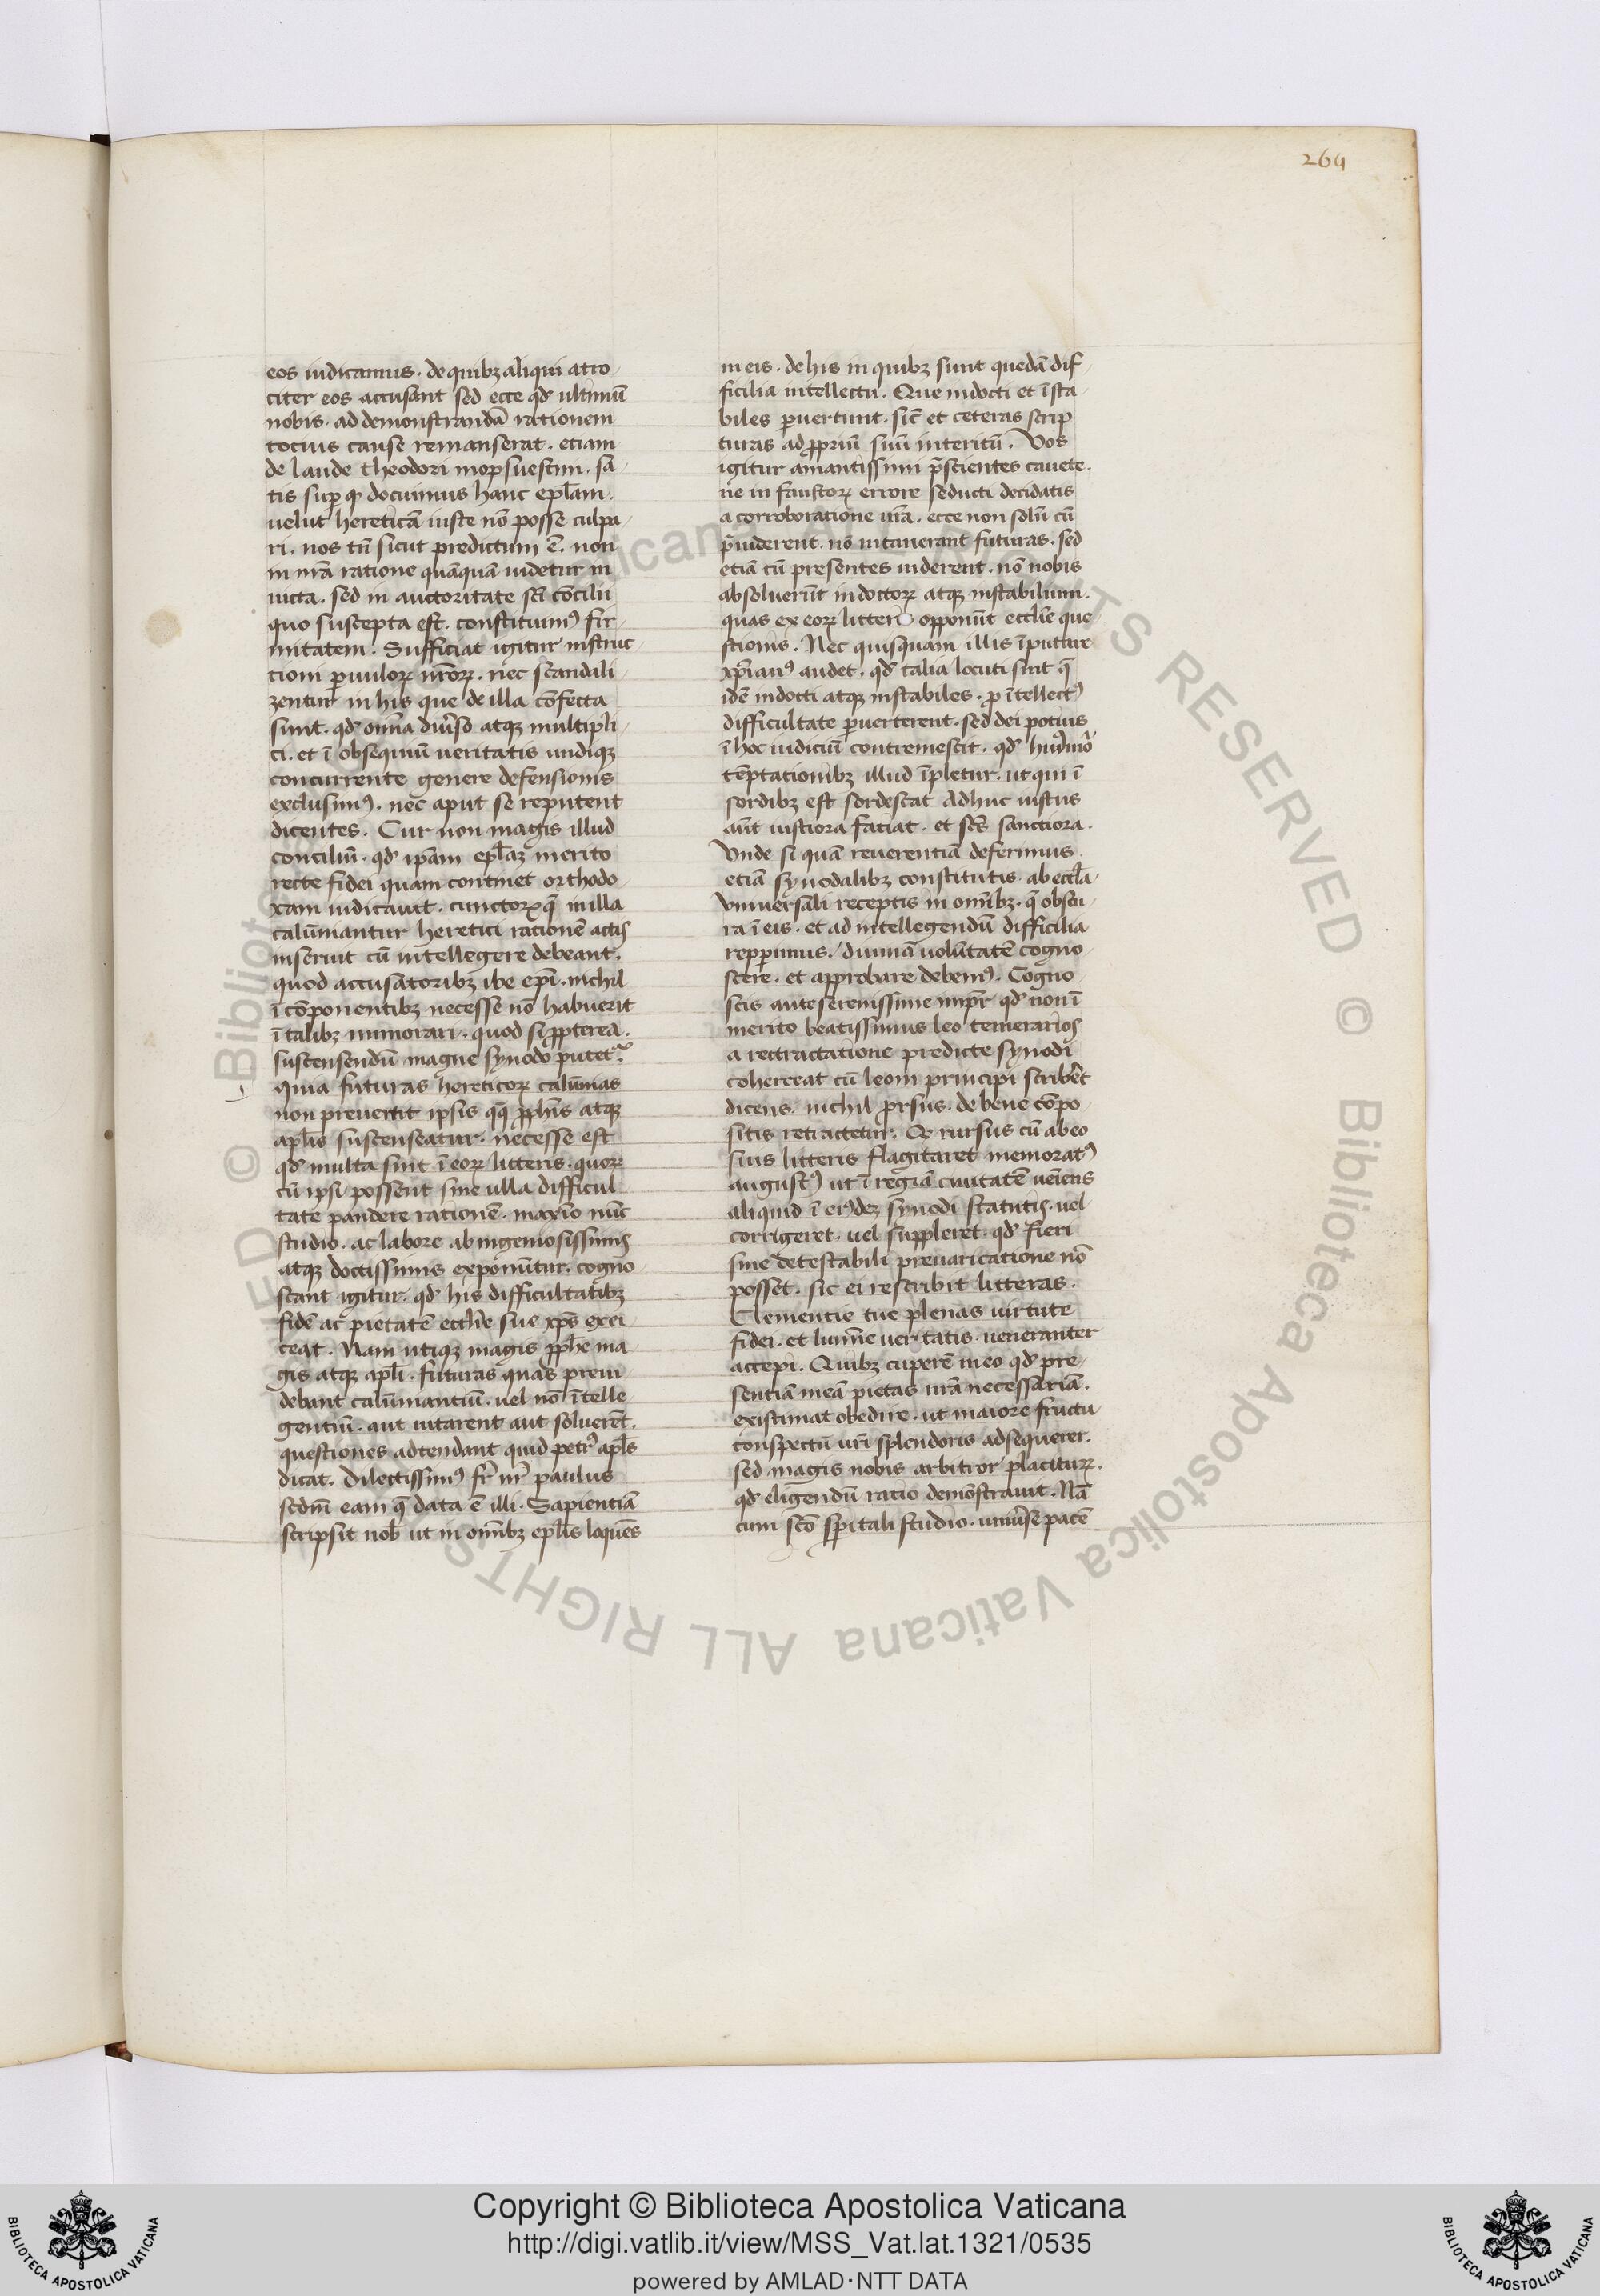 264
eos iudicamus. de quibꝫ aliqui atro
citer eos accusant sed ecce qd̛ ultimū
nobis. ad demonstrandā rationem
tocius cause remanserat. etiam
de laude theodori mopsuesteni. sa
tis suꝑ qꝫ docuimus hanc epl̄am.
uelut hereticā iuste nō posse culpa
ri. nos tn̄ sicut predictum ē. non
in nr̄a ratione quāquā uidetur in
uicta. sed in auctoritate sc̄i cōcilii
quo suscepta est. constituimꝰ fir
mitatem. Sufficiat igitur instruc
tioni ꝑuuloꝝ nr̄oꝝ. nec scandali
zentur in his que de illa cōfecta
sunt. qd̛ om̄ia diu͛so atqꝫ multipli
ci. et ī obsequiū ueritatis undiqꝫ
concurrente genere defensionis
exclusimꝰ. nec aput se reputent
dicentes. Cur non magis illud
conciliū. qd̛ ip̄am epl̄aꝫ merito
recte fidei quam continet orthodo
xam iudicauit. cunctoꝝ q̄ in illa
calūniantur heretici rationē actis
inseruit cū intellegere debeant.
quod accusatoribꝫ ibe ep̄i. nichil
ī cōponentibꝫ necesse nō habuerit
ī talibꝫ inmorari. quod si ꝓpterea.
suscensendū magne synodo putet᷑.
quia futuras hereticoꝝ calūnias
non preuertit ipsis qꝫ ꝓph̄is atqꝫ
apl̄is suscenseatur. necesse est
qd̛ multa sint ī eoꝝ litteris. quoꝝ
cū ipsi possent sine ulla difficul
tate pandere rationē. maxīo nūc
studio. ac labore ab ingeniosissimis
atqꝫ doctissimis exponūtur. cogno
scant igitur. qd̛ his difficultatibꝫ
fidē ac pietatē eccl̄ie sue xp̄s exci
teat. Nam utiqꝫ magis ꝓph̄e ma
gis atqꝫ apl̄i. futuras quas preui
debant calūniantiū. uel nō ītelle
gentiū. aut uitarent aut soluerēt.
questiones adtendant quid petrꝰ apl̄s
dicat. Dilectissimꝰ fr̄ nr̄ paulus
scd̄m eam q̄ data ē illi. Sapientiā
scripsit nob̄ ut in om̄ibꝫ epl̄is loquēs
in eis. de his in quibꝫ sunt quedā dif
ficilia intellectu. Que indocti et īsta
biles ꝑuertunt. sic̄ et ceteras scrip
turas ad ꝓpriū suū interitū. Vos
igitur amantissimi p̄scientes cauete.
ne in faustoꝝ errore seducti decidatis
a corroboratione ur̄a. ecce non solū cū
p̄uiderent. nō uitauerant futuras. sed
etiā cū presentes uiderent. nō nobis
absoluerūt indoctoꝝ atqꝫ instabilium.
quas ex eoꝝ litteri opponūt eccl̄ie que
stionis. Nec quisquam illis īputare
xp̄ianꝰ audet. qd̛ talia locuti sint q̄
idē indocti atqꝫ instabiles. ꝓ ītellectꝰ
difficultate ꝑuerterent. sed dei potius
ī hoc iudiciū contremescit. qd̛
tēptationibꝫ illud īpletur. ut qui ī
sordibꝫ est sordescat Adhuc iustus
aūt iustiora faciat. et sc̄s sanctiora.
Vnde si quā reuerentiā deferimus.
etiā synodalibꝫ constitutis. ab eccl̄a
vniuersali receptis in om̄ibꝫ. q̄ obscu
ra ī eis. et ad intellegendū difficilia
repperimus. diuinā uolūtatē cogno
scere. et approbare debemꝰ. Cogno
scis autē serenissime imꝑr̄ qd̛ non ī
merito beatissimus leo temerarios
a rectractatione predicte synodi
coherceat cū leoni principi scribēt
dicens. nichil ꝓrsus. de bene cōpo
sitis retractetur. Et rursus cū ab eo
suis litteris flagitaret memoratꝰ
augustꝰ ut ī regiā ciuitatē ueniens
aliquid ī eisdeꝫ synodi statutis. uel
corrigeret. uel suppleret. qd̛ fieri
sine detestabili preuaricatione nō
posset. sic ei rescribit litteras.
Clementie tue plenas uirtute
fidei. et lumīe ueritatis. ueneranter
accepi. Quibꝫ cuperē in eo qd̛ pre
sentiā meā pietas ur̄a necessariā.
existimat obedire. ut maiore fructu
conspectū ur̄i splendoris adsequerer.
sed magis nobis arbitror placituꝝ.
qd̛ eligendū ratio demōstrauit. Nā
cum sc̄o sp̄itali studio. uniu͛se pacē
Copyright © Biblioteca Apostolica Vaticana
http://digi.vatlib.it/view/MSS_Vat.lat.1321/0535
powered by AMLAD·NTT DATA
BIBLIOTECA APOSTOLICA VATICANA
BIBLIOTECA APOSTOLICA VATICANA
© Biblioteca Apostolica Vaticana ALL RIGHTS RESERVED
© Biblioteca Apostolica Vaticana ALL RIGHTS RESERVED